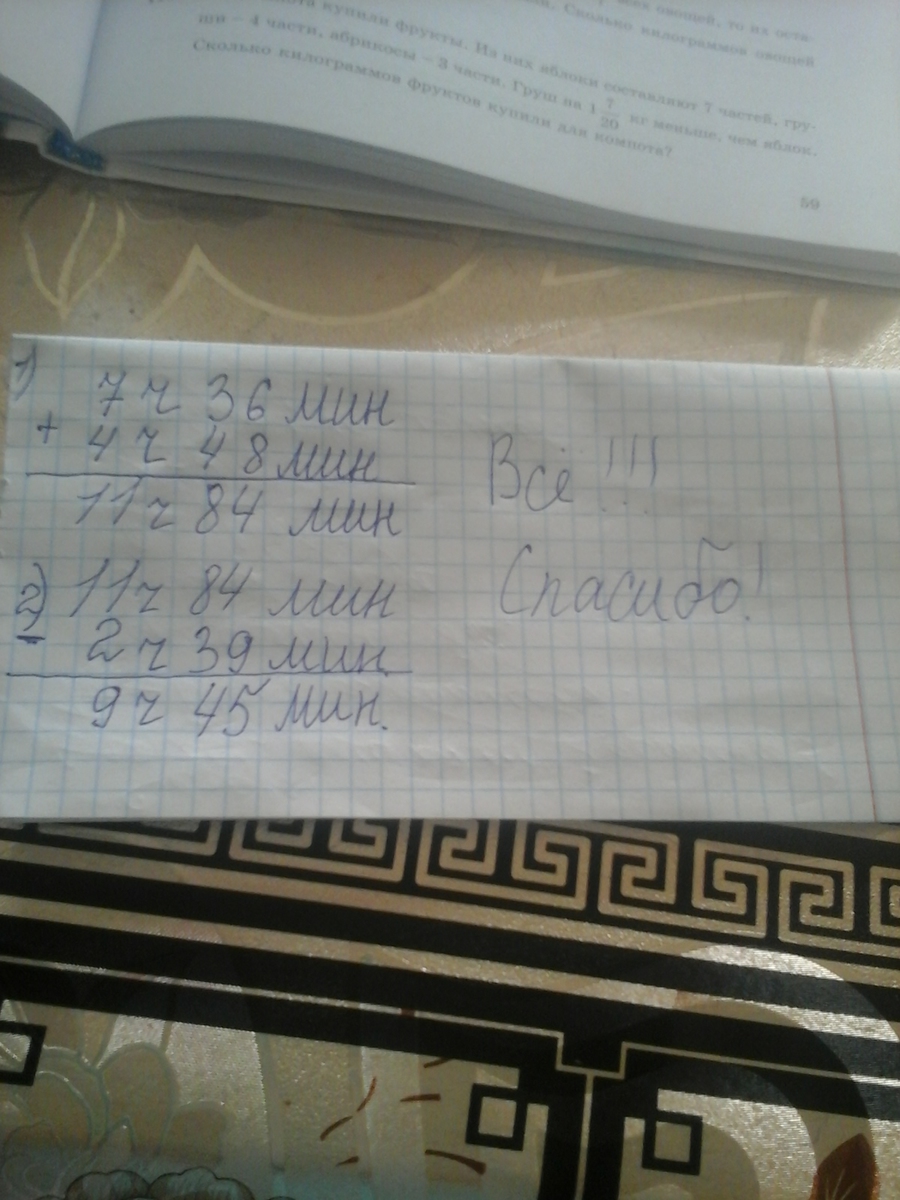 всех овощей, то их оста-
Сколько килограммов овощей
купили фрукты. Из них яблоки составляют 7 частей, гру-
ши – 4 части, абрикосы – 3 части. Груш на 1 7/20 кг меньше, чем яблок.
Сколько килограммов фруктов купили для компота?
59
1) 7 ч 36 мин
+ 4 ч 48 мин
11 ч 84 мин
2) 11 ч 84 мин
- 2 ч 39 мин
9 ч 45 мин.
Всё!!!
Спасибо!